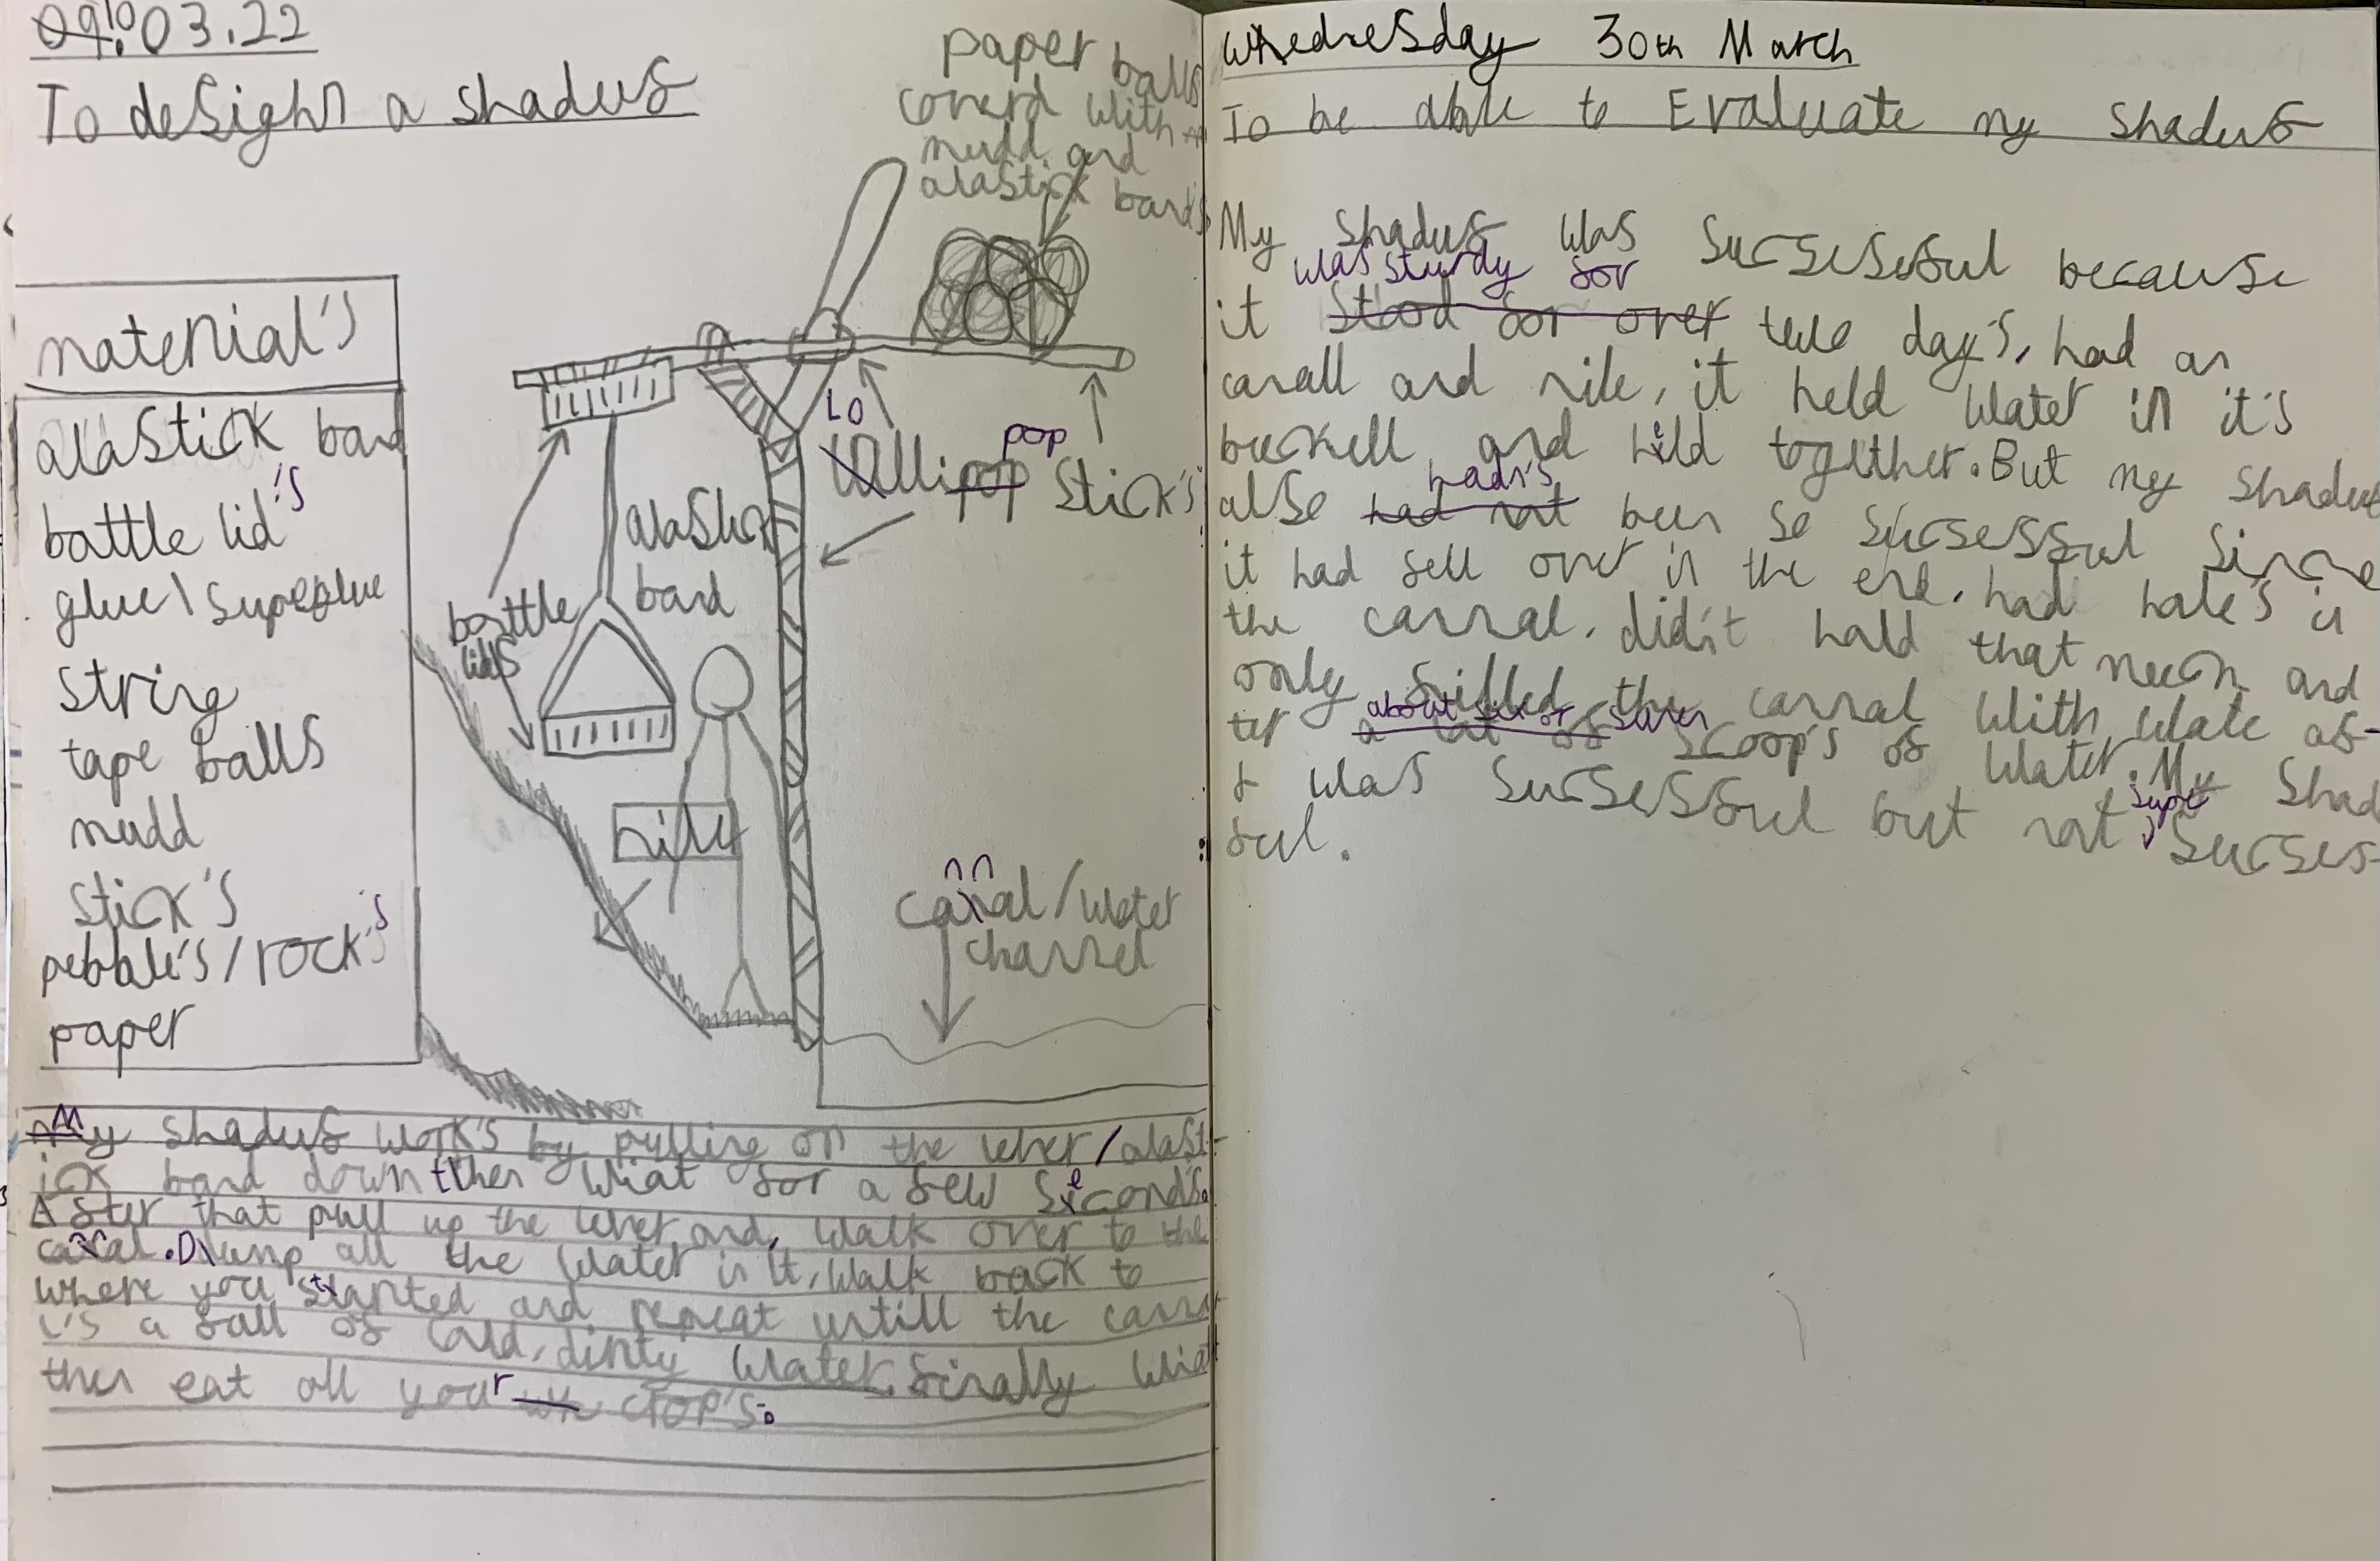 10.03.22
To desighn a shaduf
paper balls
coverd with
mudd and
alastick band's
material's
alastick band
bottle lid's
glue\superglue
string
tape balls
mudd
stick's
pebble's/rock's
paper
Lollipop stick's
alastick
band
bottle
lids
nile
cannal/water
channel
My shaduf work's by pulling on the lever/alast-
ick band down then wiat for a few second's.
After that pull up the lever and, walk over to the
canal. Dump all the water in it, walk back to
where you started and repeat untill the canna
i's a full of cold, dirty water. finally wiat
then eat all your crop's.
Wednesday 30th March
To be able to Evaluate my shaduf
My shaduf was sucsessful because
it was sturdy for two day's, had an
canall and nile, it held water in it's
buckell and held together. But my shaduf
also hadn't been so sucsessful since
it had fell over in the end, had hole's in
the cannal, didn't hold that much and
only filled the cannal with wate af-
ter about six or seven scoop's of water. My shad
f was sucsessful but not supe sucses-
ful.